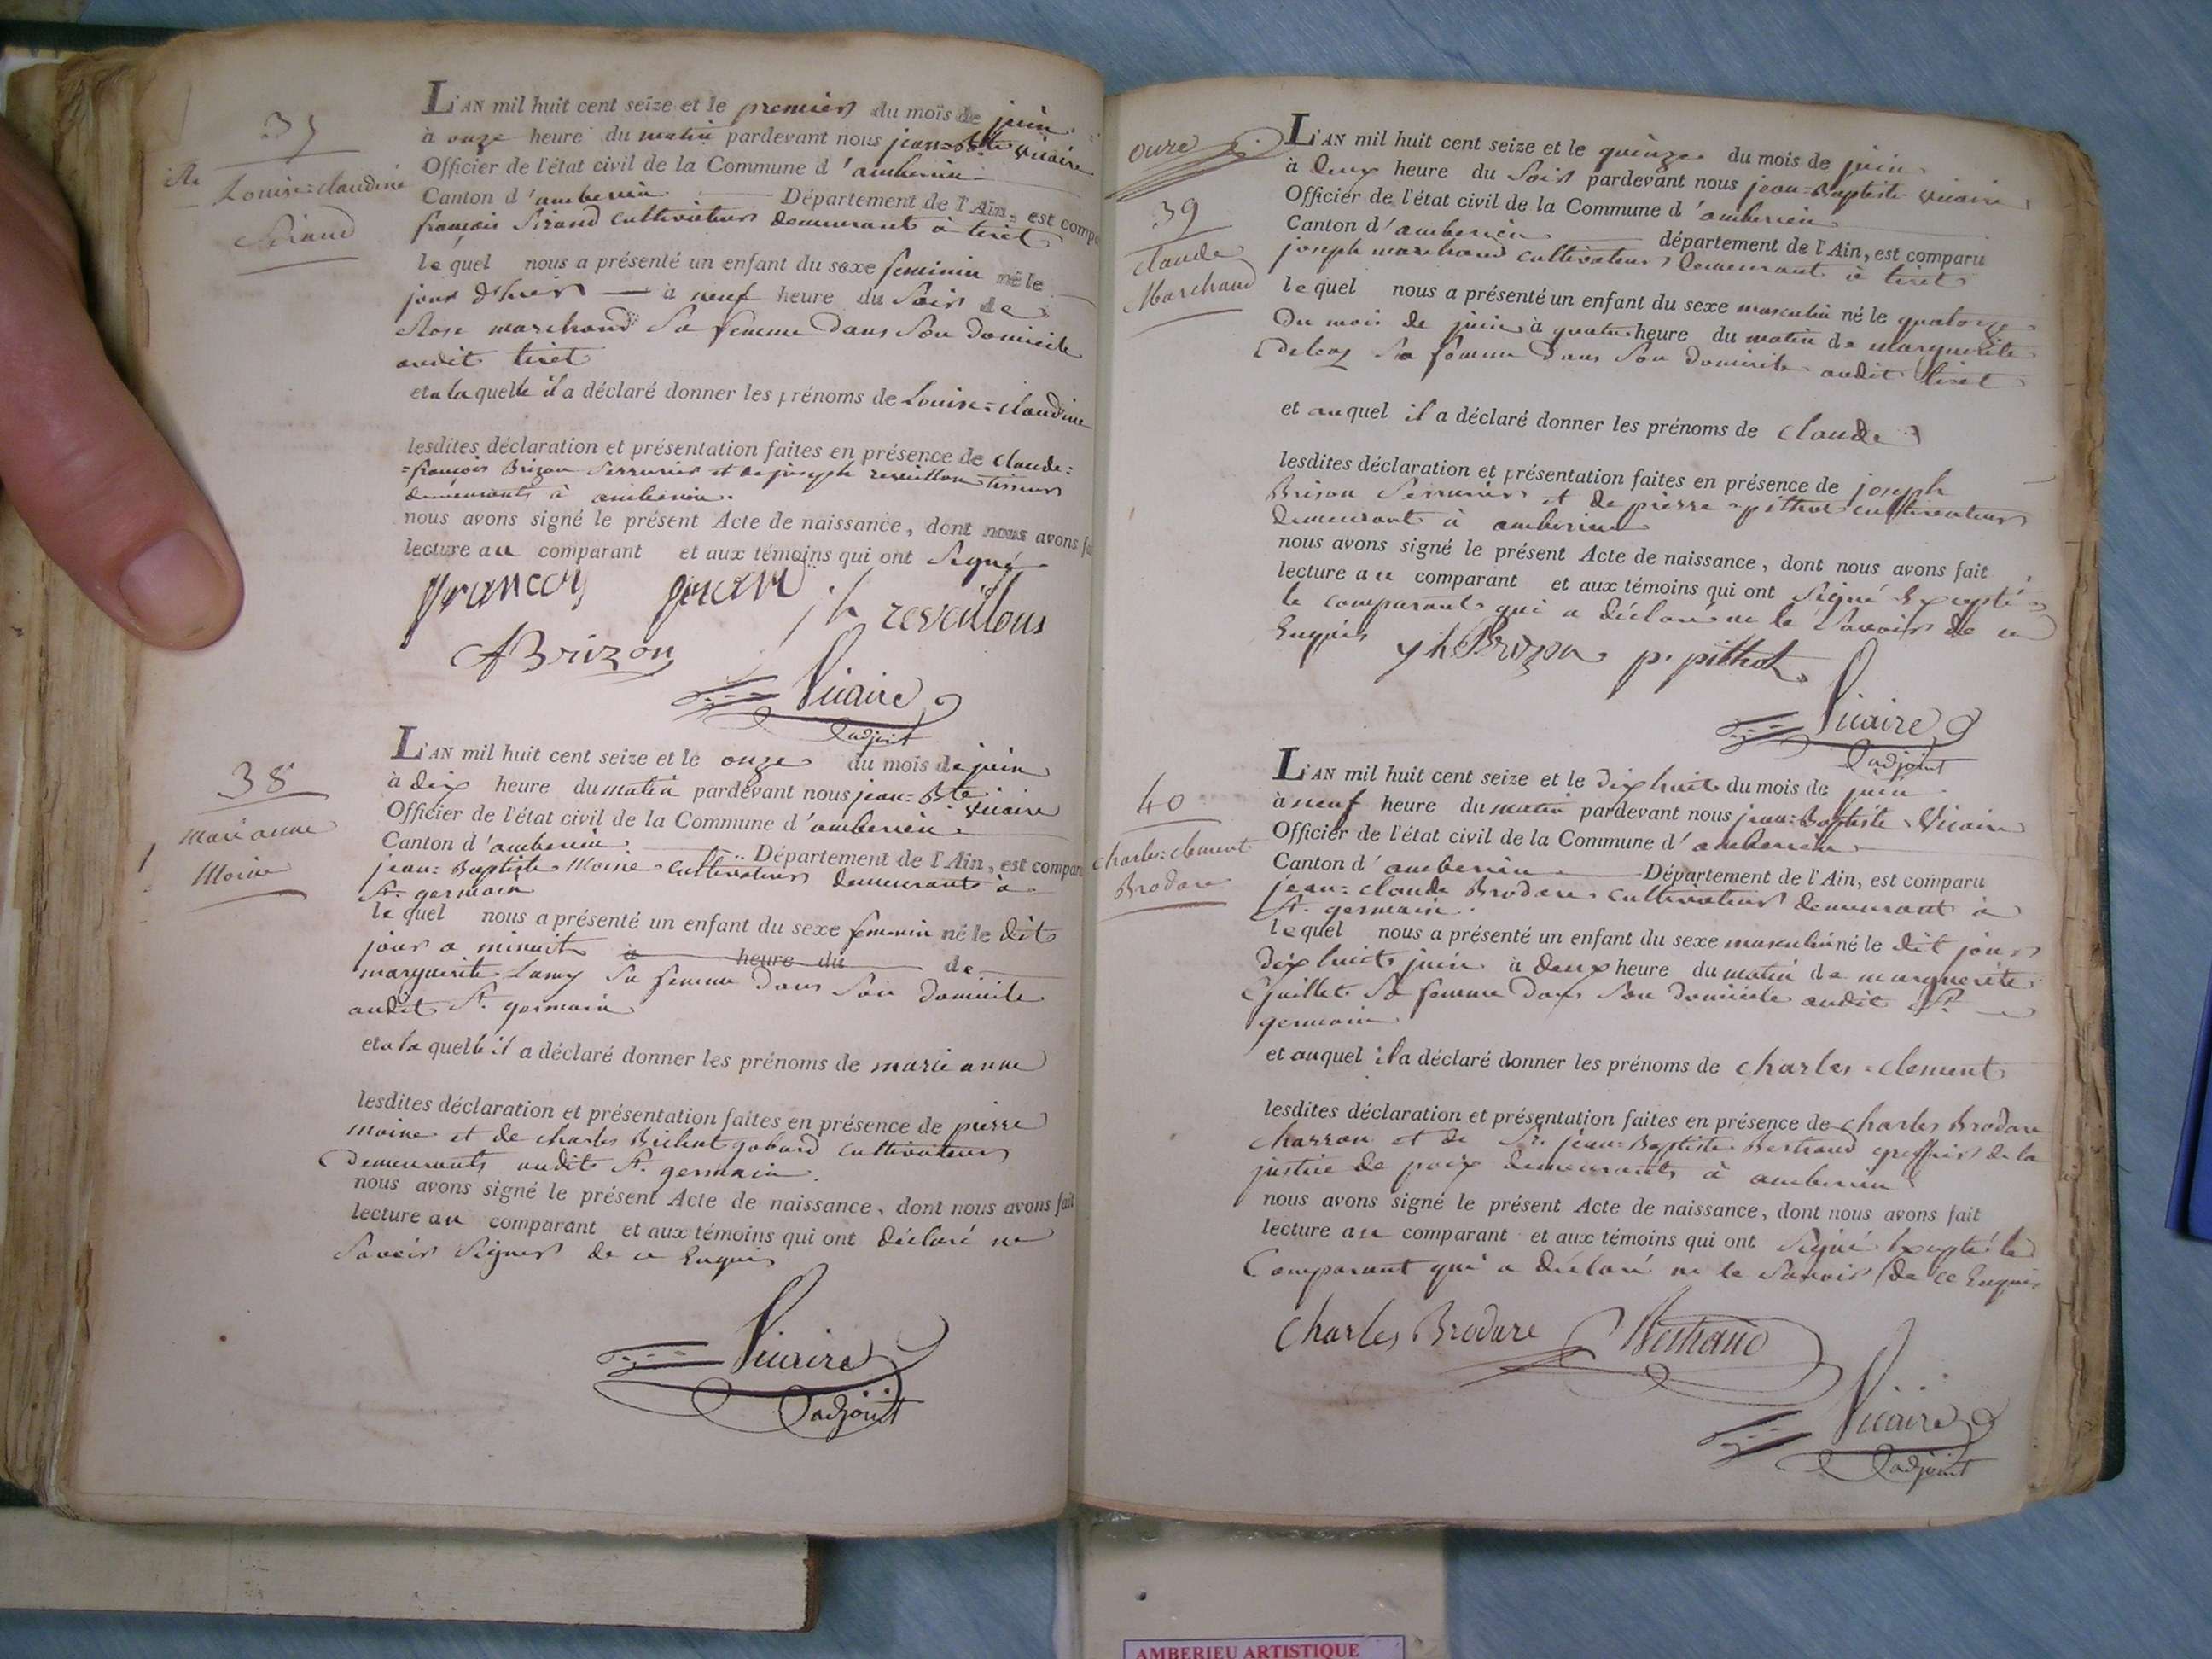 37
Louise=claudine
Sirand
L'AN mil huit cent seize et le premier du mois de juin
à onze heure du matin pardevant nous jean=Bte vicaire
Officier de l'état civil de la Commune d'amberieu
Canton d'amberieu Département de l'Ain, est compa
françois Sirand cultivateur demeurant à tiret
lequel nous a présenté un enfant du sexe feminin né le
jour d'hier à neuf heure du Soir de
Rose marchand Sa femme dans Son domicile
audit tiret
et a laquelle il a déclaré donner les prénoms de Louise=claudine
lesdites déclaration et présentation faites en présence de claude=
=françois Brizon Serrurier et de joseph reveillon tisseur
demeurants à amberieu.
nous avons signé le présent Acte de naissance, dont nous avons fai
lecture au comparant et aux témoins qui ont Signé
francois
jh reveillous
Brizon
Vicaire
adjoint
38
marianne
Moine
L'AN mil huit cent seize et le onze du mois de juin
à dix heure du matin pardevant nous jean=Bte vicaire
Officier de l'état civil de la Commune d'amberieu
Canton d'amberieu Département de l'Ain, est compar
jean=Baptiste Moine cultivateur demeurant à
St. germain
lequel nous a présenté un enfant du sexe feminin né le dit
jour a minuit à heure du de
marguerite Lamy Sa femme dans Son domicile
audit St. germain
et a laquelle il a déclaré donner les prénoms de marianne
lesdites déclaration et présentation faites en présence de pierre
moine et de charles Bichat gobard cultivateurs
demeurants audit St. germain.
nous avons signé le présent Acte de naissance, dont nous avons fait
lecture au comparant et aux témoins qui ont déclaré ne
Savoir Signer de ce Enquis
Vicaire
adjoint
onze
39
claude
Marchand
L'AN mil huit cent seize et le quinze du mois de juin
à deux heure du Soir pardevant nous jean=Baptiste vicaire
Officier de l'état civil de la Commune d'amberieu
Canton d'amberieu département de l'Ain, est comparu
joseph marchand cultivateur demeurant à tiret
lequel nous a présenté un enfant du sexe masculin né le quatorze
du mois de juin à quatre heure du matin de marguerite
Sa femme dans Son domicile audit tiret
et auquel il a déclaré donner les prénoms de claude
lesdites déclaration et présentation faites en présence de joseph
Brison Serrurier et de pierre pithot cultivateur
demeurant à amberieu
nous avons signé le présent Acte de naissance, dont nous avons fait
lecture au comparant et aux témoins qui ont Signé Excepté
le comparant qui a déclaré ne le Savoir de ce
Enquis
jh Brizon p. pithot
Vicaire
adjoint
40
charles=clement
Brodare
L'AN mil huit cent seize et le dix huit du mois de juin
à neuf heure du matin pardevant nous jean=Baptiste Vicaire
Officier de l'état civil de la Commune d'amberieu
Canton d'amberieu Département de l'Ain, est comparu
jean=claude Brodare cultivateur demeurant à
St. germain.
lequel nous a présenté un enfant du sexe masculin né le dit jour
dix huit juin à deux heure du matin de marguerite
juillet Sa femme dans Son domicile audit St.
germain
et auquel il a déclaré donner les prénoms de charles=clement
lesdites déclaration et présentation faites en présence de charles Brodare
charron et de Sr. jean=Baptiste Bertrand greffier de la
justice de paix demeurants à amberieu
nous avons signé le présent Acte de naissance, dont nous avons fait
lecture au comparant et aux témoins qui ont Signé Excepté le
Comparant qui a déclaré ne le Savoir de ce Enquis
Charles Brodare Bertrand
Vicaire
adjoint
AMBERIEU ARTISTIQUE